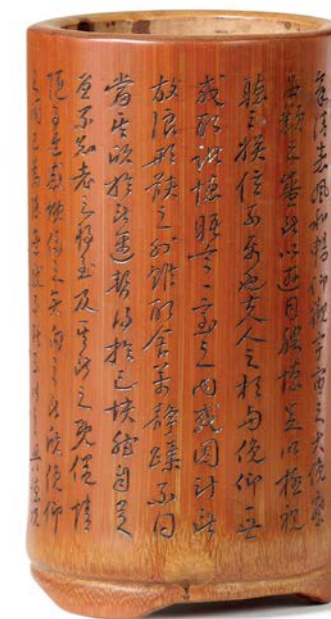 氣清惠風和暢仰觀宇宙之大俯察
品類之盛所以遊目騁懷足以極視
聽之娛信可樂也夫人之相與俯仰一世
或取諸懷抱悟言一室之內或因寄所託
放浪形骸之外雖取舍萬殊靜躁不同
當其欣於所遇暫得於己怏然自足
曾不知老之將至及其所之既倦情
隨事遷感慨係之矣向之所欣俛仰
之間已為陳迹猶不能不以之興懷況